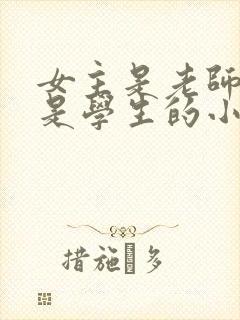 女主是老師
是學生的小
措施 多